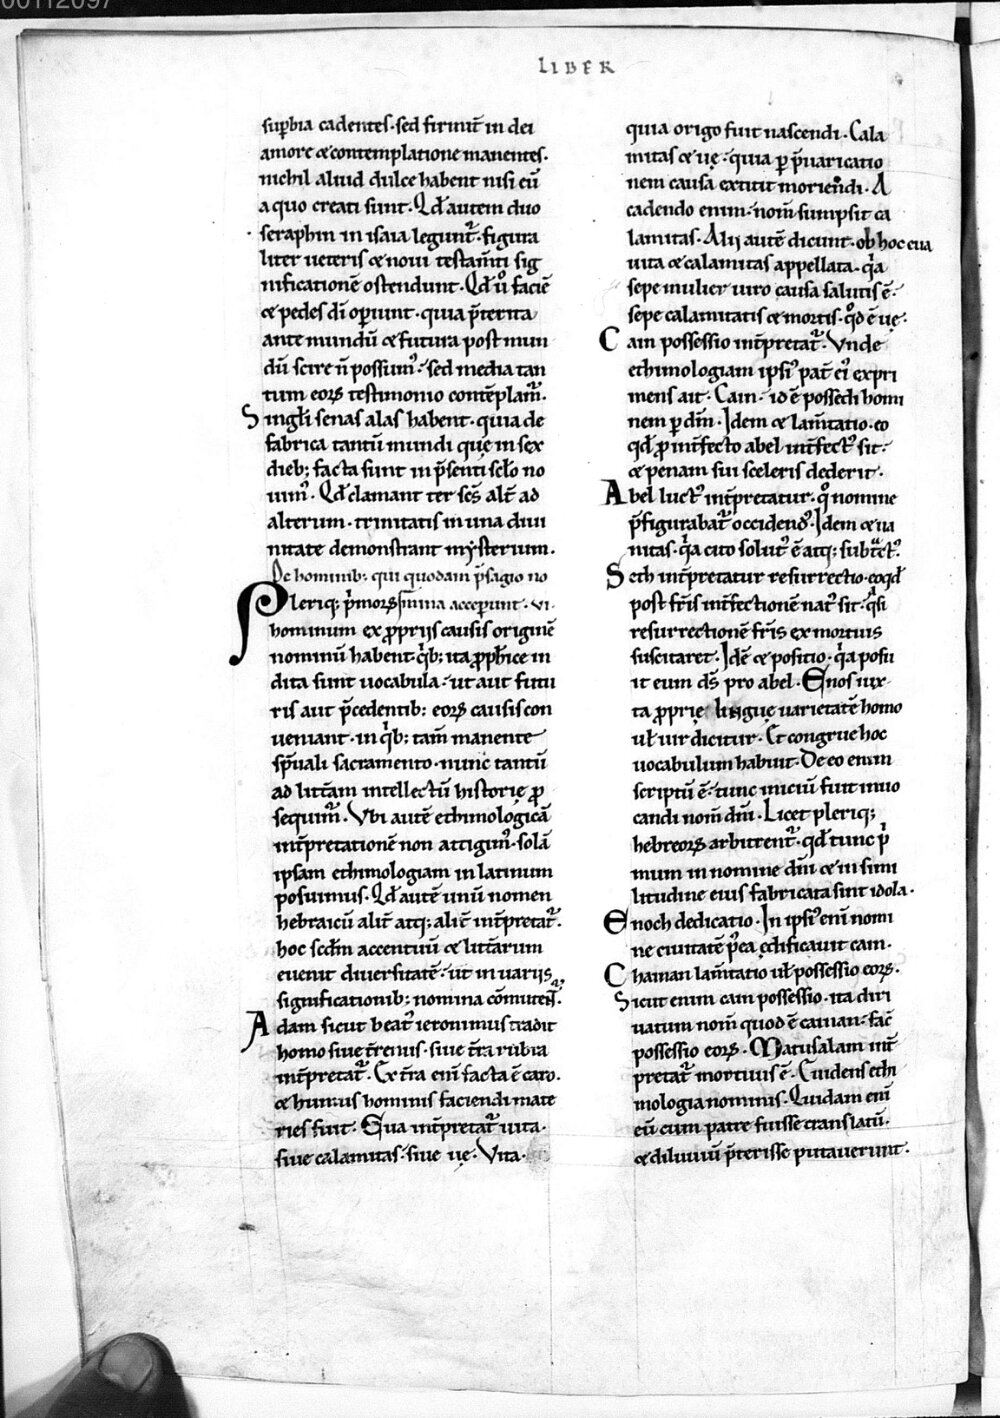 00112097
LIBER
sup̱bia cadentes · sed firmit̄ in dei
amore & contemplatione manentes ·
nichil aliud dulce habent nisi eū
a quo creati sunt · Qd̄ autem duo
seraphin in isaia legunt᷑ · figura
liter ueteris & noui testam̄ti sig
nificationē ostendunt · Qd̄ u͛o faciē
& pedes dī op̱iunt · quia p̄terita
ante mundū & futura post mun
dū scire n̄ possumꝰ · sed media tan
tum eoꝝ testimonio contēplam᷑ ·
Singl̄i senas alas habent · quia de
fabrica tantū mundi quę in sex
dieb; facta sunt in p̄senti sc̄lo no
uimꝰ · Qd̄ clamant ter sc̄s alt̄ ad
alterum · trinitatis in una diui
nitate demonstrant mysterium ·
De hominib; qui quodam p̄sagio no
Pleriq; p̄moꝝ mina acceperunt · vi ·
hominum ex ꝓpriis causis originē
nominū habent · qͥb; ita ꝓph̄ice in
dita sunt uocabula · ut aut futu
ris aut p̄cedentib; eoꝝ causis con
ueniant · in qͥb; tam̄ manente
sp̄uali sacramento · nunc tantū
ad litt̄am intellectū historię ꝓ
sequim᷑ · Vbi autē ethimologicā
int̄pretationē non attigimꝰ · solā
ipsam ethimologiam in latinum
posuimus · Qd̄ autē unū nomen
hebraicū alit̄ atq; alit̄ int̄pretat᷑ ·
hoc scd̄m accentuū & litt̄arum
euenit diuersitatē · ut in uariis
significationib; nomina cōmutent᷑ ·
Adam sicut beatꝰ ieronimus tradit
homo siue t̄renus · siue t̄ra rubra
int̄pretat᷑ · Ex t̄ra eni᷑ facta ē caro ·
& humus hominis faciendi mate
ries fuit · Eua int̄pretat᷑ uita ·
siue calamitas · siue uę · Vita ·
quia origo fuit nascendi · Cala
mitas & uę · quia p̱ p̄uaricatio
nem causa extitit moriendi · A
cadendo enim · nom̄ sumpsit ca
lamitas · Alij autē dicunt · ob hoc eua
uita & calamitas appellata · qͣa
sepe mulier uiro causa salutis ē ·
sepe calamitatis & mortis · qͦd ē uę ·
Cain possessio int̄pretat᷑ · Vnde
ethimologiam ipsiꝰ pat̄ eiꝰ expri
mens ait · Cain · id ē possedi homi
nem p̱ dm̄ · Idem & lam̄tatio · eo
qd̄ ꝓ int̄fecto abel int̄fectꝰ sit ·
& penam sui sceleris dederit ·
Abel luctꝰ int̄pretatur · qͦ nomine
p̄figurabat᷑ occidendꝰ · Idem & ua
nitas · qͣa cito solutꝰ ē atq; subt̄ctꝰ ·
Seth int̄pretatur resurrectio · eo qd̄
post fr̄is int̄fectionē natꝰ sit · qͣsi
resurrectionē fr̄is ex mortuis
suscitaret · Idē & positio · qͣa posu
it eum ds̄ pro abel · Enos iux
ta ꝓprię linguę uarietatē homo
ul̄ uir dicitur · Et congrue hoc
uocabulum habuit · De eo enim
scriptū ē · tunc iniciū fuit inuo
candi nom̄ dn̄i · Licet pleriq;
hebreoꝝ arbitrent᷑ · qd̄ tunc pͥ
mum in nomine dn̄i & in simi
litudine eius fabricata sint idola ·
Enoch dedicatio · In ipsiꝰ eni᷑ nomi
ne ciuitatē p̄ea ędificauit cain ·
Chainan lam̄tatio ul̄ possessio eoꝝ ·
Sicut enim cain possessio · ita diri
uatum nom̄ quod ē cainan · fac̄
possessio eoꝝ · Matusalam int̄
pretat᷑ mortuus ē · Euidens ethi
mologia nominis · Quidam eni᷑
eū cum patre fuisse translatū ·
& diluuiū p̄terisse putauerunt ·